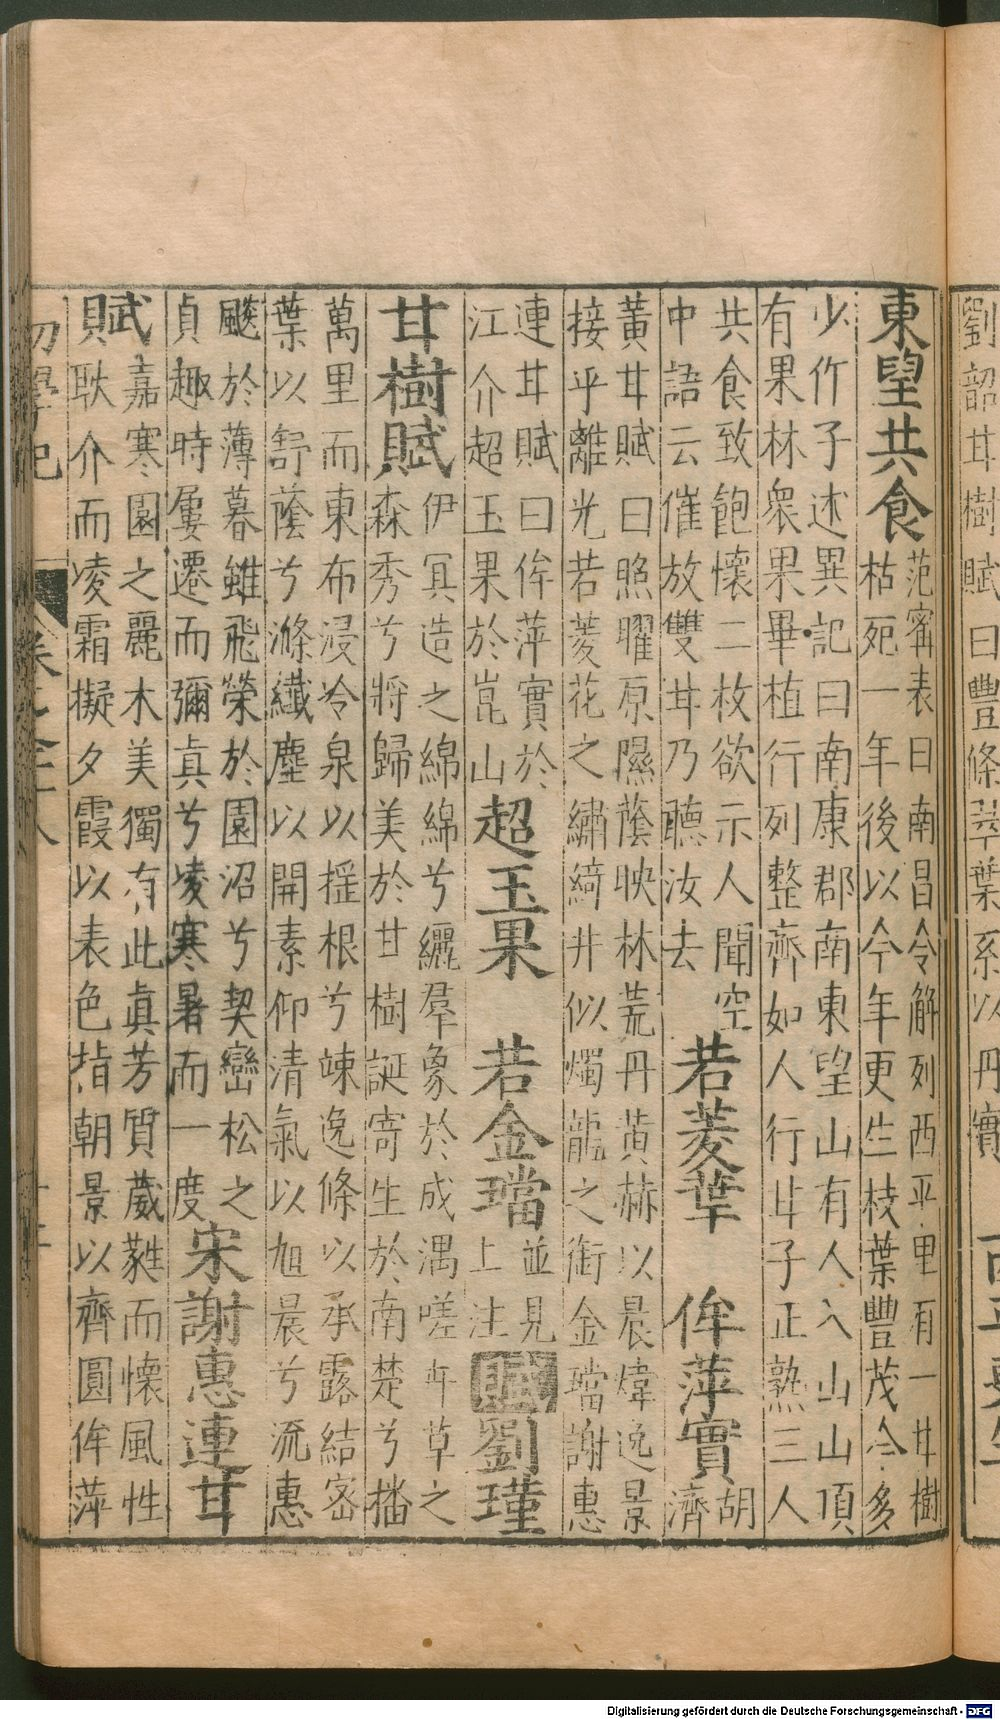 劉韶甘樹賦曰豐條萃葉系以丹實
東望共食
范甯表曰南昌令解列西平里有一甘樹
枯死一年後以今年更生枝葉豐茂今多
少作子述異記曰南康郡南東望山有人入山山頂
有果林眾果畢植行列整齊如人行甘子正熟三人
共食致飽懷二枚欲示人聞空
中語云催放雙甘乃聽汝去
若菱葉　侔萍實
胡
濟
黃甘賦曰照曜原隰蔭映林荒丹黃赫以晨煒逸景
接乎離光若菱花之繡綺井似燭龍之銜金璫謝惠
連甘賦曰侔萍實於
江介超玉果於崑山
超玉果　若金璫
並見
上注
賦劉瑾
甘樹賦
伊冥造之綿綿兮纚羣象於成渦嗟卉草之
森秀兮將歸美於甘樹誕寄生於南楚兮播
萬里而東布浸冷泉以搖根兮竦逸條以承露結密
葉以舒蔭兮滌纖塵以開素仰清氣以旭晨兮流惠
飈於薄暮雖飛榮於園沼兮契巒松之
貞趣時屢遷而彌真兮凌寒暑而一度
宋謝惠連甘
賦
嘉寒園之麗木美獨有此真芳質葳蕤而懷風性
耿介而凌霜擬夕霞以表色指朝景以齊圓侔萍
Digitalisierung gefördert durch die Deutsche Forschungsgemeinschaft - DFG